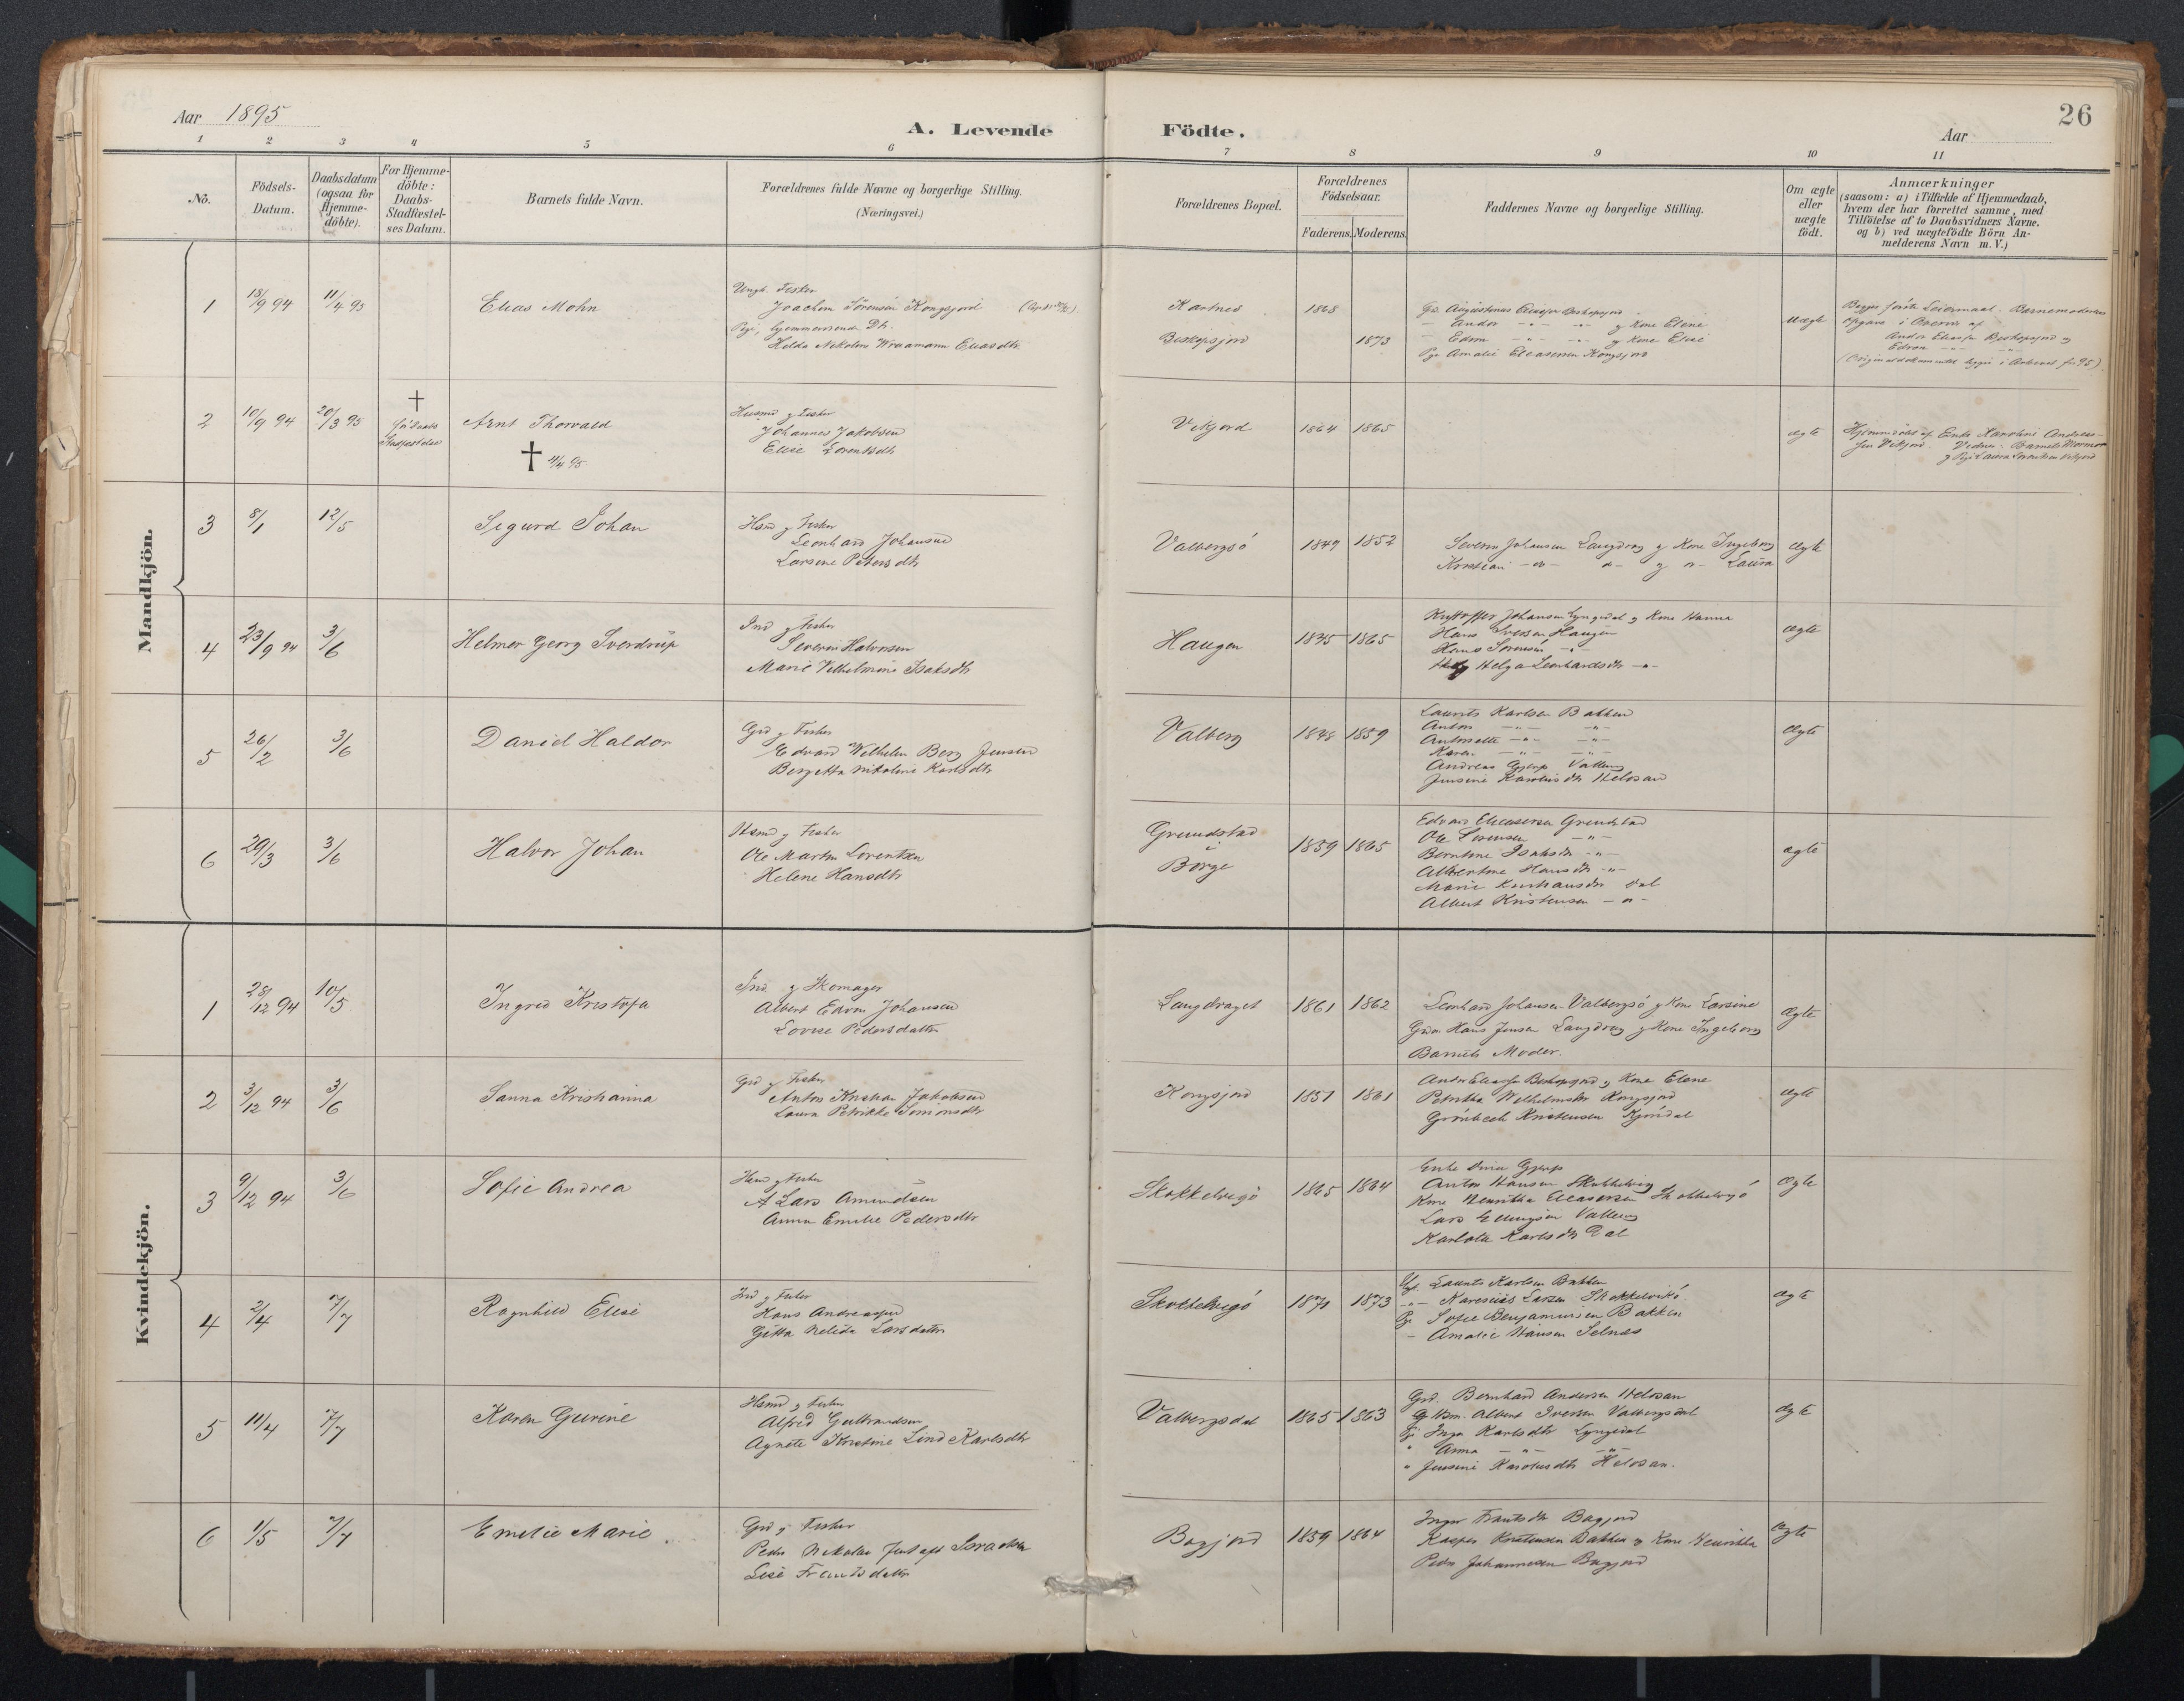 Aar 1895
A. Levende Födte.
Aar
26
1 2 3 4 5 6 7 8 9 10 11
No.
Födsels-Datum.
Daabsdatum (ogsaa for Hjemmedöbte).
For Hjemmedöbte: Daabs-Stadfæstelses Datum.
Barnets fulde Navn.
Forældrenes fulde Navne og borgerlige Stilling.
(Næringsvei.)
Forældrenes Bopæl.
Forældrenes Födselsaar.
Faderens. Moderens.
Faddernes Navne og borgerlige Stilling.
Om ægte eller uægte födt.
Anmærkninger
(saasom: a) i Tilfælde af Hjemmedaab, hvem der har forrettet samme, med Tilföielse af to Daabsvidners Navne, og b) ved uægtefödte Börn Anmelderens Navn m. V.)
Mandkjön.
1 18/9 94 11/4 95 Elias Mohn
Ungk. Fisker
Joachim Sörensen Kongsjord
Pige, hjemmeværende Dtr.
Kartnes 1868
Biskopsjord 1873
Gd. Augustinus Eliass. Biskopsjord
Andor -"- -"- og Kone Elene
Edvin -"- -"- og Kone Elise
Pige Amalie Eleasersen Kongsjord
uægte
2 10/9 94 20/3 95 † Arnt Thorvald
† 4/4 95
Husmd og Fisker
Johannes Jakobsen
Elise Lorentsdtr
Vikjord 1864 1865
ægte
Hjemmedöbt af Enke Karoline Andreassen Vikjord. Vidner: Barnets Mormor
og Pige Laura Lorentsen Vikjord
3 8/1 12/5 Sigurd Johan
Hsmd og Fisker
Leonhard Johansen
Larsine Petersdtr
Valbergsö 1849 1852
Severin Johansen Langdrag og Kone Ingeborg
Kristian -"- -"- og -"- Laura
ægte
4 23/9 94 3/6 Helmer Georg Sverdrup
Ind og Fisker
Severin Halvorsen
Marie Vilhelmine Isaksdtr
Haugen 1835 1865
Kristoffer Johansen Lyngedal og Kone Hanna
Hans Iversen Haugen
Hans Sörensen -"-
Helga Leonhardsdtr -"-
ægte
5 26/2 3/6 Daniel Haldor
Grd og Fisker
Edvard Wilhelm Berg Jensen
Bergetta Nikoline Karlsdtr
Valberg 1848 1859
Laurits Karlsen Bakken
Anton -"- -"-
Antonette -"- -"-
Karen -"- -"-
Andreas Gjerp Valberg
Jensine Karolusdtr Helosan
ægte
6 29/3 3/6 Halvor Johan
Hsmd og Fisker
Ole Martin Lorentsen
Helene Hansdtr
Grundstad i Borge 1859 1865
Edvard Eleasersen Grundstad
Ole Sörensen -"-
Berntine Isaksdtr -"-
Albertine Hansdtr -"-
Marie Kristiansdtr Dal
Albert Kristensen -"-
ægte
Kvindekjön.
1 28/12 94 10/5 Ingrid Kristofa
Ind og Skomager
Albert Edvin Johansen
Lovise Pedersdatter
Langdraget 1861 1862
Leonhard Johansen Valbergsö og Kone Larsine
Grdm. Hans Jensen Langdrag og Kone Ingeborg
Barnets Moder.
ægte
2 3/12 94 3/6 Sanna Kristianna
Grd og Fisker
Anton Kristian Jakobsen
Laura Petrikke Simonsdtr
Kongsjord 1857 1861
Andor Eliass. Biskopsjord og Kone Elene
Petrikka Wilhelmsdtr Kongsjord
Grönbech Kristensen
ægte
3 9/12 94 3/6 Sofie Andrea
Hsmd og Fisker
Lars Amundsen
Anna Emilie Pedersdtr
Skokkelvigö 1865 1864
Enke Gjerp
Anton Hansen Skokkelvig
Kone Henrikka Eleasersen Skokkelvigö
Lars Ellingsen Valberg
Karlotte Karlsdtr Dal
ægte
4 2/4 7/7 Ragnhild Elise
Ind og Fisker
Hans Andreassen
Gitta Nelida Larsdatter
Skokkelvigö 1870 1873
Ugk. Laurits Karlsen Bakken
-"- Karesius Larsen Skokkelvikö
Pge Sofie Benjaminsen Bakken
- Amalie Hansen Selnæs
ægte
5 11/4 7/7 Karen Gurine
Hsmd og Fisker
Alfred Gulbrandsen
Agnete Kristine Lind Karlsdtr
Valbergsdal 1865 1863
Grd. Bernhard Andersen Helosan
Hsm. Albert Iversen Valbergsdal
Pge Inga Karlsdtr Lyngedal
" Anna -"- -"-
" Jensine Karolusdtr Helosan.
ægte
6 1/5 7/7 Emilie Marie
Grd og Fisker
Peder Nikolai Israelsen
Lise Frantsdatter
Bagjord 1859 1864
Inger Frantsdtr Bagjord
Kasper Kristensen Bakken og Kone Henrikka
Peder Johannessen Bagjord
ægte